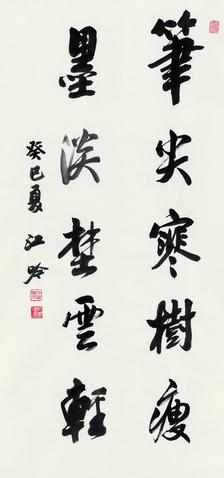 筆尖寒樹瘦
墨淡埜雲輕
癸巳夏 江吟